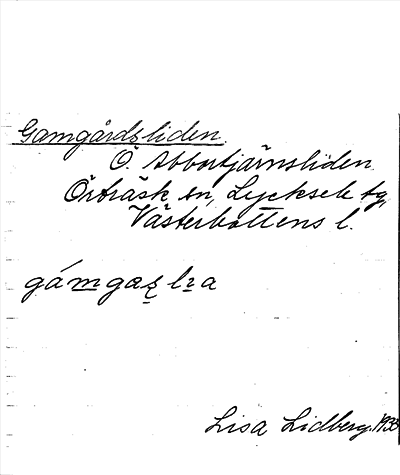 Gamgårdsliden.
Ö. Abbortjärnsliden
Örträsk sn, Lycksele tg,
Västerbottens l.
Lisa Lidberg. 1933